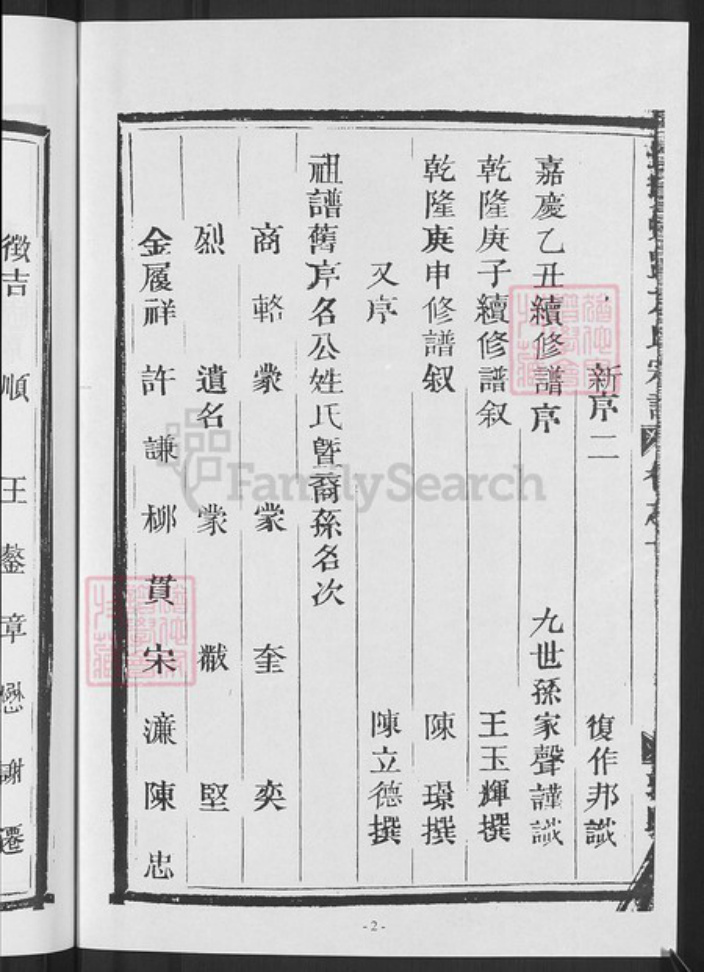 新序二 復作邦識
嘉慶乙丑續修譜序 九世孫家聲謹識
乾隆庚子續修譜叙 王玉輝撰
乾隆庚申修譜叙 陳璟撰
又序 陳立德撰
祖譜舊序名公姓氏曁裔孫名次
商輅 蒙 蒙 奎 奕
烈 遺名 蒙 黻 堅
金履祥 許謙 柳貫 宋濂 陳忠
-2-
徵吉 順 王鏊 章懋 謝遷
FamilySearch